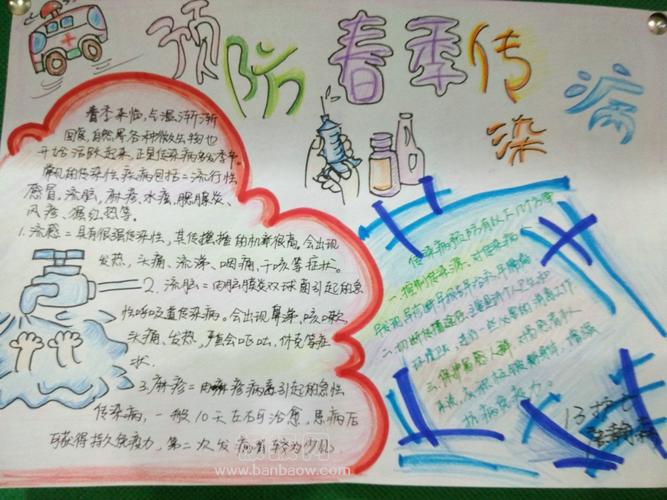 预防春季传染病
春季来临,气温渐渐
回暖,自然界各种微生物也
开始活跃起来,正是传染病多发季节。
常见的传染性疾病包括=流行性
感冒、流脑、麻疹、水痘、腮腺炎、
风疹、猩红热等。
1.流感=具有很强传染性,其传播的机率很高,会出现
发热、头痛、流涕、咽痛、干咳等症状。
2.流脑=由脑膜炎双球菌引起的急
性呼吸道传染病,会出现鼻塞、咳嗽、
头痛、发热、还会呕吐、休克等症
状。
3.麻疹=由麻疹病毒引起的急性
传染病,一般10天左右可治愈,患病后
可获得持久免疫力,第二次发病者较为少见
传染病预防有以下几个方面
一、控制传染源,对传染病人
早发现、早诊断、早报告、早治疗、早隔离
二、切断传播途径,注意个人卫生和
环境卫生,进行一些必要的消毒工作
三、保护易感人群,对易感者
积极锻炼身体,增强
抗病免疫力。
13护七
www.banbaow.com